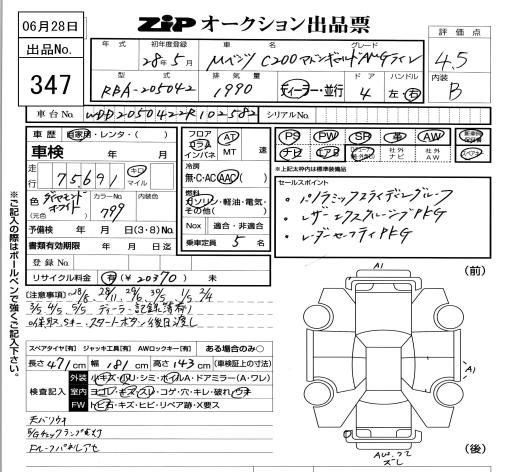 06月28日
出品No.
347
ZIP オークション出品票
評価点
4.5
内装
B
年式 初年度登録 車名 グレード
28年5月 Mベンツ C200
型式 排気量 ドア ハンドル
RBA-205042 1990 ディーラー・並行 4 左・右
車台No. WDD2050422R102582 シリアルNo.
車歴 自家用・レンタ・( )
車検 年 月
走行 75,691 キロ マイル
色 ダイヤモンドホワイト (元色) カラーNo. 799 内装色
予備検 年 月 日(3・8)No.
書類有効期限 年 月 日迄
登録No.
リサイクル料金 有(¥20370) 未
フロア コラム インパネ AT MT 速
冷房 無・C・AC AAC( )
燃料 ガソリン・軽油・電気・その他( )
Nox 適合・非適合
乗車定員 5 名
PS PW SR 革 AW
ナビ エアB 社外ナビ 社外AW
新車時保証書
スペアキー
※上記太枠内は標準装備品
セールスポイント
・パノラミックスライディングルーフ
・レザーエクスクルーシブPKG
・レーダーセーフティPKG
※ご記入の際はボールペンで強くご記入下さい。
(注意事項)
ディーラー記録簿有り
スタートボタン後日渡し
スペアタイヤ[有] ジャッキ工具[有] AWロックキー[有] ある場合のみ○
長さ 471cm 幅 181cm 高さ 143cm (車検証上の寸法)
検査記入
外装 小キズ・凹ツ・シミ・ホイルA・ドアミラー(A・ワレ)
室内 ヨゴレ・キズ・スレ・コゲ・穴・キレ・破れ・ウキ
FW トビ石・キズ・ヒビ・リペア跡・X要ス
E/Gチェックランプ点灯
(前)
A1
A1
(後)
ズレ